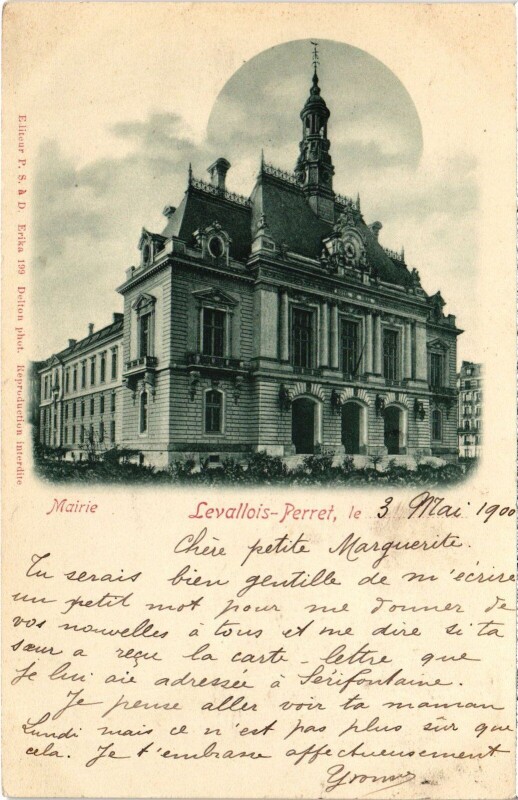 Editeur P. S. à D. Erika 199 Delton phot. Reproduction interdite
Mairie
Levallois-Perret, le 3 Mai 1900
Chère petite Marguerite.
Tu serais bien gentille de m'écrire
un petit mot pour me donner de
vos nouvelles à tous et me dire si ta
sœur a reçu la carte-lettre que
je lui aie adressée à Sérifontaine.
Je pense aller voir ta maman
Lundi mais ce n'est pas plus sûr que
cela. Je t'embrasse affectueusement
Yvonne